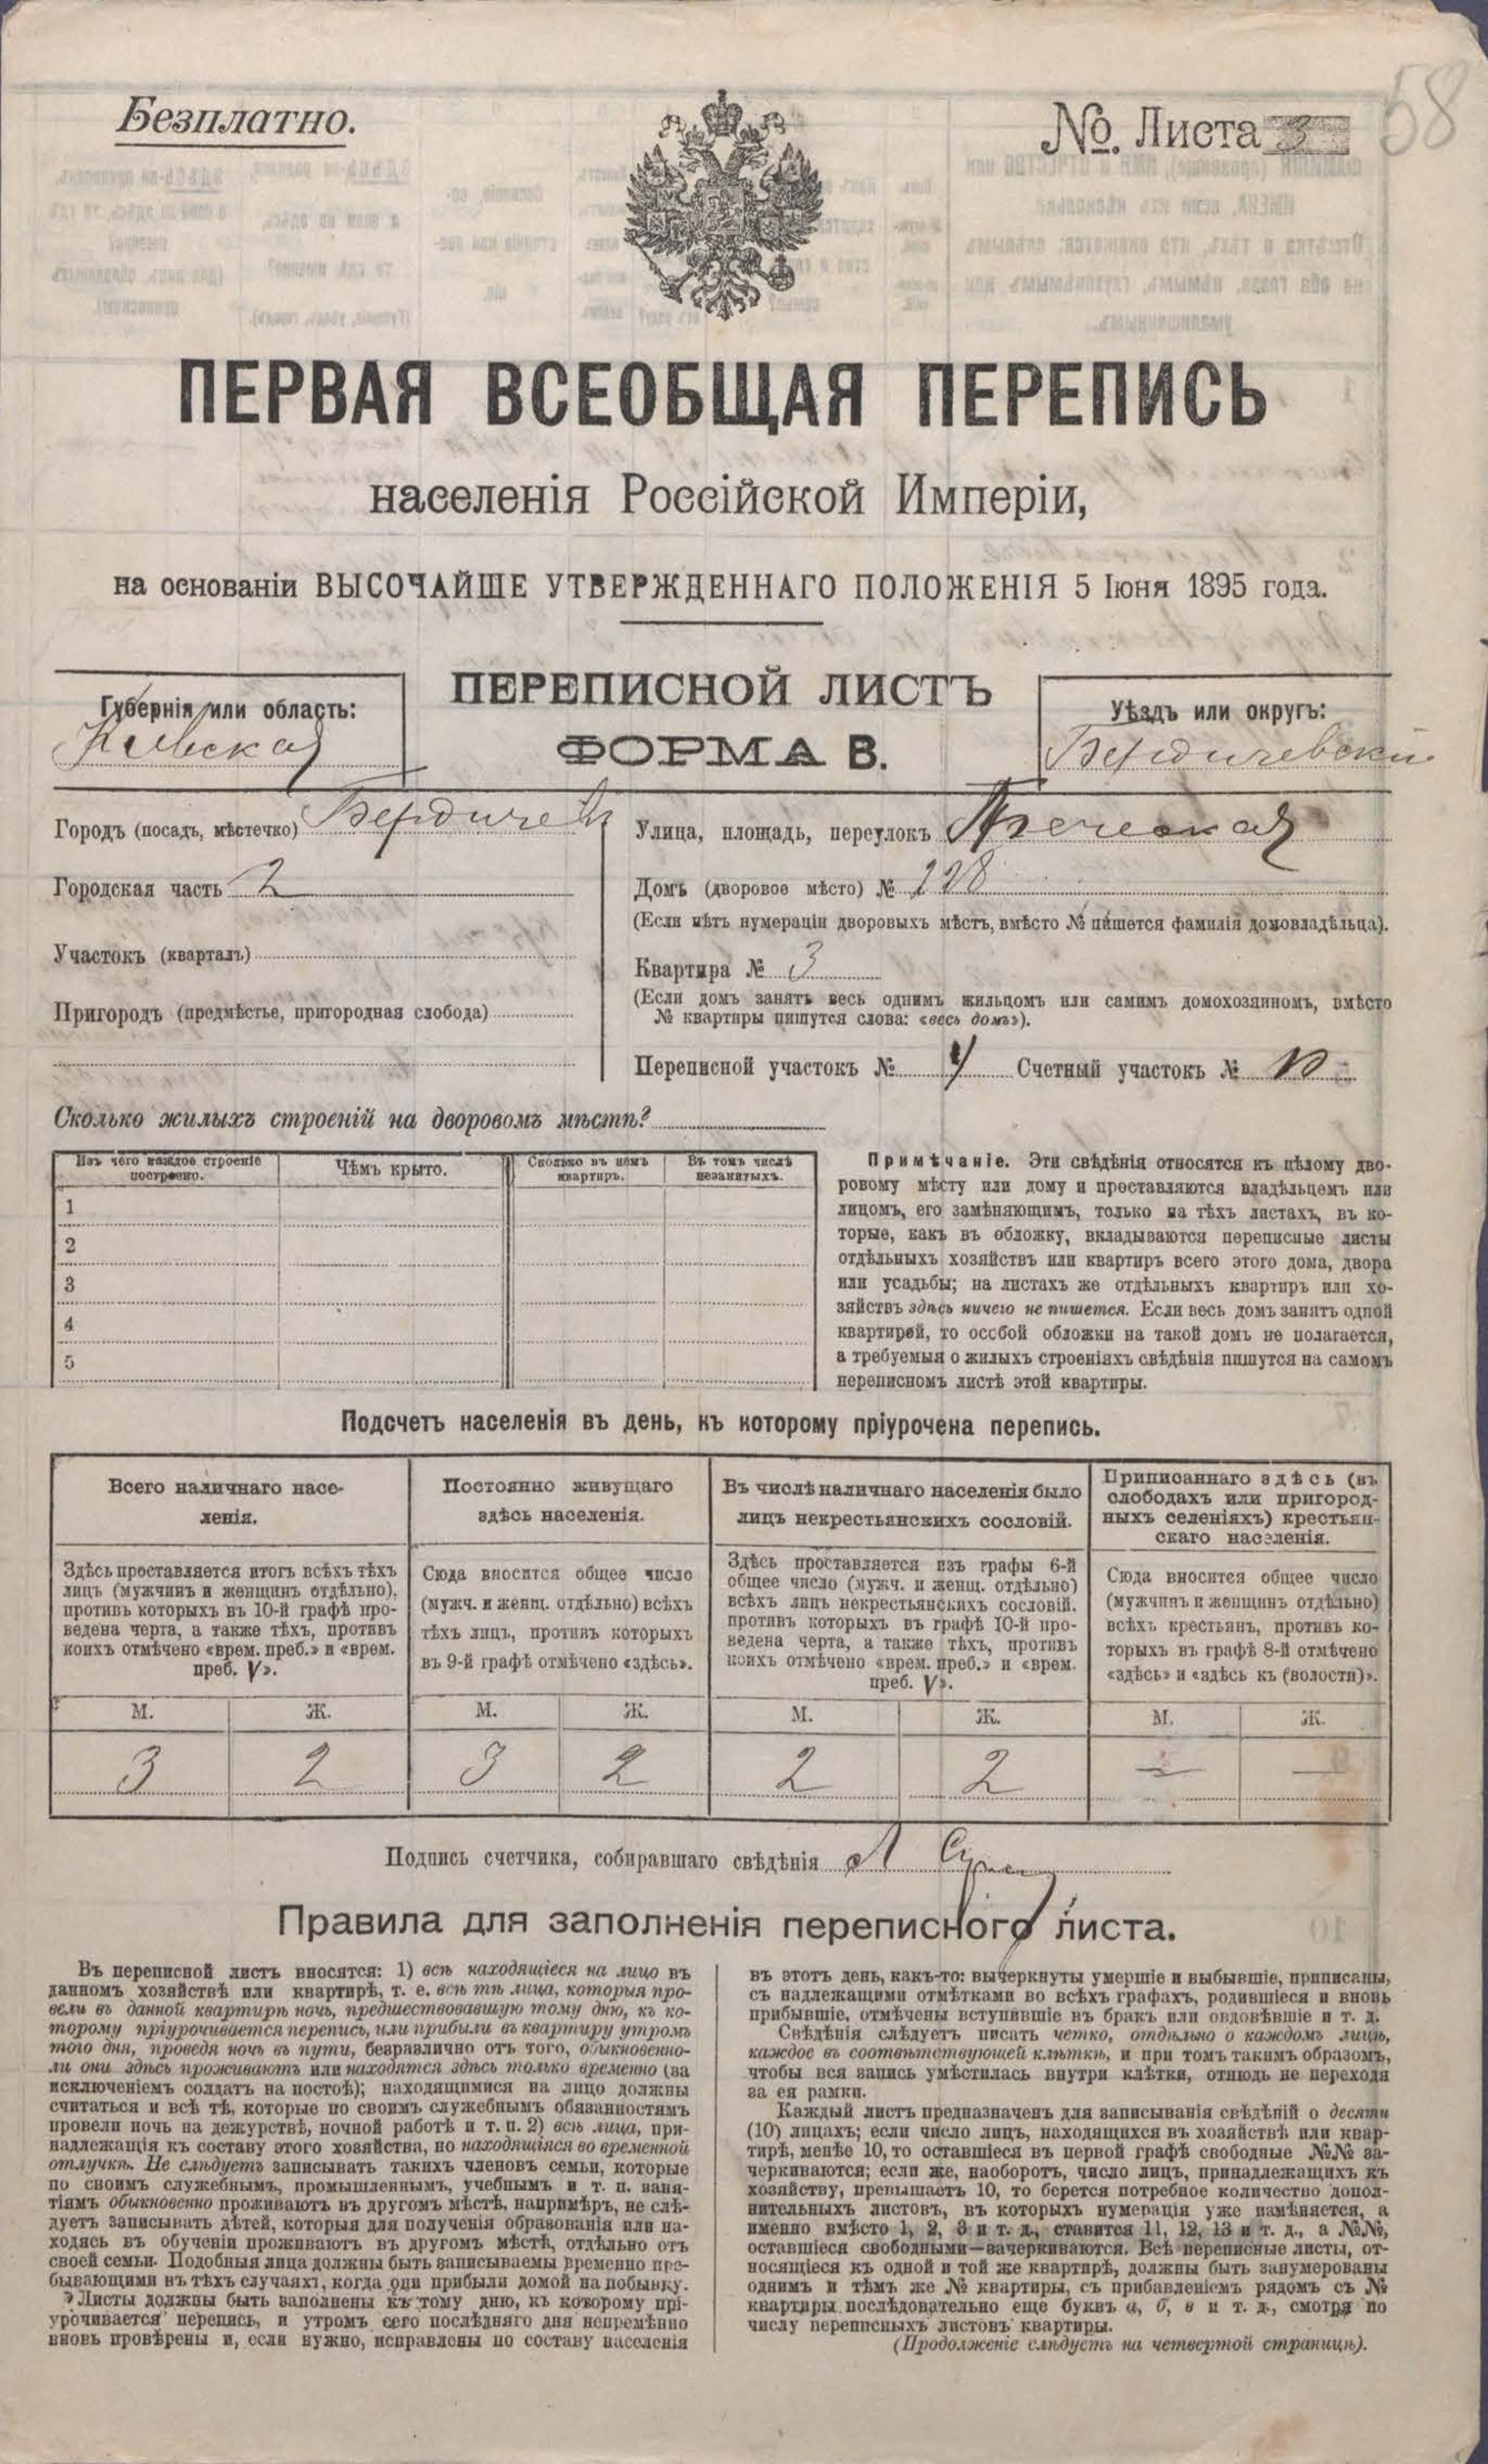 Безплатно.
№. Листа 3
58
ПЕРВАЯ ВСЕОБЩАЯ ПЕРЕПИСЬ
населенія Россійской Имперіи,
на основаніи ВЫСОЧАЙШЕ УТВЕРЖДЕННАГО ПОЛОЖЕНІЯ 5 Іюня 1895 года.
ПЕРЕПИСНОЙ ЛИСТЪ
ФОРМА В.
Губернія или область:
Кіевская
Уѣздъ или округъ:
Бердичевскій
Городъ (посадъ, мѣстечко) Бердичевъ
Городская часть 2
Участокъ (кварталъ)
Пригородъ (предмѣстье, пригородная слобода)
Улица, площадь, переулокъ
Домъ (дворовое мѣсто) № 228
(Если нѣтъ нумераціи дворовыхъ мѣстъ, вмѣсто № пишется фамилія домовладѣльца).
Квартира № 3
(Если домъ занятъ весь однимъ жильцомъ или самимъ домохозяиномъ, вмѣсто
№ квартиры пишутся слова: «весь домъ»).
Переписной участокъ № 4 Счетный участокъ № 10
Сколько жилыхъ строеній на дворовомъ мѣстѣ?
Изъ чего каждое строеніе
построено.
Чѣмъ крыто.
Сколько въ немъ
квартиръ.
Въ томъ числѣ
незанятыхъ.
1
2
3
4
5
Примѣчаніе. Эти свѣдѣнія относятся къ цѣлому дво-
ровому мѣсту или дому и проставляются владѣльцемъ или
лицомъ, его замѣняющимъ, только на тѣхъ листахъ, въ ко-
торые, какъ въ обложку, вкладываются переписные листы
отдѣльныхъ хозяйствъ или квартиръ всего этого дома, двора
или усадьбы; на листахъ же отдѣльныхъ квартиръ или хо-
зяйствъ здѣсь ничего не пишется. Если весь домъ занятъ одной
квартирой, то особой обложки на такой домъ не полагается,
а требуемыя о жилыхъ строеніяхъ свѣдѣнія пишутся на самомъ
переписномъ листѣ этой квартиры.
Подсчетъ населенія въ день, къ которому пріурочена перепись.
Всего наличнаго насе-
ленія.
Здѣсь проставляется итогъ всѣхъ тѣхъ
лицъ (мужчинъ и женщинъ отдѣльно),
противъ которыхъ въ 10-й графѣ про-
ведена черта, а также тѣхъ, противъ
коихъ отмѣчено «врем. преб.» и «врем.
преб. V».
Постоянно живущаго
здѣсь населенія.
Сюда вносится общее число
(мужч. и женщ. отдѣльно) всѣхъ
тѣхъ лицъ, противъ которыхъ
въ 9-й графѣ отмѣчено «здѣсь».
Въ числѣ наличнаго населенія было
лицъ некрестьянскихъ сословій.
Здѣсь проставляется изъ графы 6-й
общее число (мужч. и женщ. отдѣльно)
всѣхъ лицъ некрестьянскихъ сословій,
противъ которыхъ въ графѣ 10-й про-
ведена черта, а также тѣхъ, противъ
коихъ отмѣчено «врем. преб.» и «врем.
преб. V».
Приписаннаго здѣсь (въ
слободахъ или пригород-
ныхъ селеніяхъ) крестьян-
скаго населенія.
Сюда вносится общее число
(мужчинъ и женщинъ отдѣльно)
всѣхъ крестьянъ, противъ ко-
торыхъ въ графѣ 8-й отмѣчено
«здѣсь» и «здѣсь къ (волости)».
М. Ж. М. Ж. М. Ж. М. Ж.
3 2 3 2 2 2 — —
Подпись счетчика, собиравшаго свѣдѣнія
Правила для заполненія переписного листа.
Въ переписной листъ вносятся: 1) всѣ находящіеся на лицо въ
данномъ хозяйствѣ или квартирѣ, т. е. всѣ тѣ лица, которыя про-
вели въ данной квартирѣ ночь, предшествовавшую тому дню, къ ко-
торому пріурочивается перепись, или прибыли въ квартиру утромъ
того дня, проведя ночь въ пути, безразлично отъ того, обыкновенно-
ли они здѣсь проживаютъ или находятся здѣсь только временно (за
исключеніемъ солдатъ на постоѣ); находящимися на лицо должны
считаться и всѣ тѣ, которые по своимъ служебнымъ обязанностямъ
провели ночь на дежурствѣ, ночной работѣ и т. п. 2) всѣ лица, при-
надлежащія къ составу этого хозяйства, но находящіяся во временной
отлучкѣ. Не слѣдуетъ записывать такихъ членовъ семьи, которые
по своимъ служебнымъ, промышленнымъ, учебнымъ и т. п. заня-
тіямъ обыкновенно проживаютъ въ другомъ мѣстѣ, напримѣръ, не слѣ-
дуетъ записывать дѣтей, которыя для полученія образованія или на-
ходясь въ обученіи проживаютъ въ другомъ мѣстѣ, отдѣльно отъ
своей семьи. Подобныя лица должны быть записываемы временно пре-
бывающими въ тѣхъ случаяхъ, когда они прибыли домой на побывку.
Листы должны быть заполнены къ тому дню, къ которому прі-
урочивается перепись, и утромъ сего послѣдняго дня непремѣнно
вновь провѣрены и, если нужно, исправлены по составу населенія
въ этотъ день, какъ-то: вычеркнуты умершіе и выбывшіе, приписаны,
съ надлежащими отмѣтками во всѣхъ графахъ, родившіеся и вновь
прибывшіе, отмѣчены вступившіе въ бракъ или овдовѣвшіе и т. д.
Свѣдѣнія слѣдуетъ писать четко, отдѣльно о каждомъ лицѣ,
каждое въ соотвѣтствующей клѣткѣ, и при томъ такимъ образомъ,
чтобы вся запись умѣстилась внутри клѣтки, отнюдь не переходя
за ея рамки.
Каждый листъ предназначенъ для записыванія свѣдѣній о десяти
(10) лицахъ; если число лицъ, находящихся въ хозяйствѣ или квар-
тирѣ, менѣе 10, то оставшіеся въ первой графѣ свободные №№ за-
черкиваются; если же, наоборотъ, число лицъ, принадлежащихъ къ
хозяйству, превышаетъ 10, то берется потребное количество допол-
нительныхъ листовъ, въ которыхъ нумерація уже измѣняется, а
именно вмѣсто 1, 2, 3 и т. д., ставится 11, 12, 13 и т. д., а №№,
оставшіеся свободными—зачеркиваются. Всѣ переписные листы, от-
носящіеся къ одной и той же квартирѣ, должны быть занумерованы
однимъ и тѣмъ же № квартиры, съ прибавленіемъ рядомъ съ №
квартиры послѣдовательно еще буквъ а, б, в и т. д., смотря по
числу переписныхъ листовъ квартиры.
(Продолженіе слѣдуетъ на четвертой страницѣ).